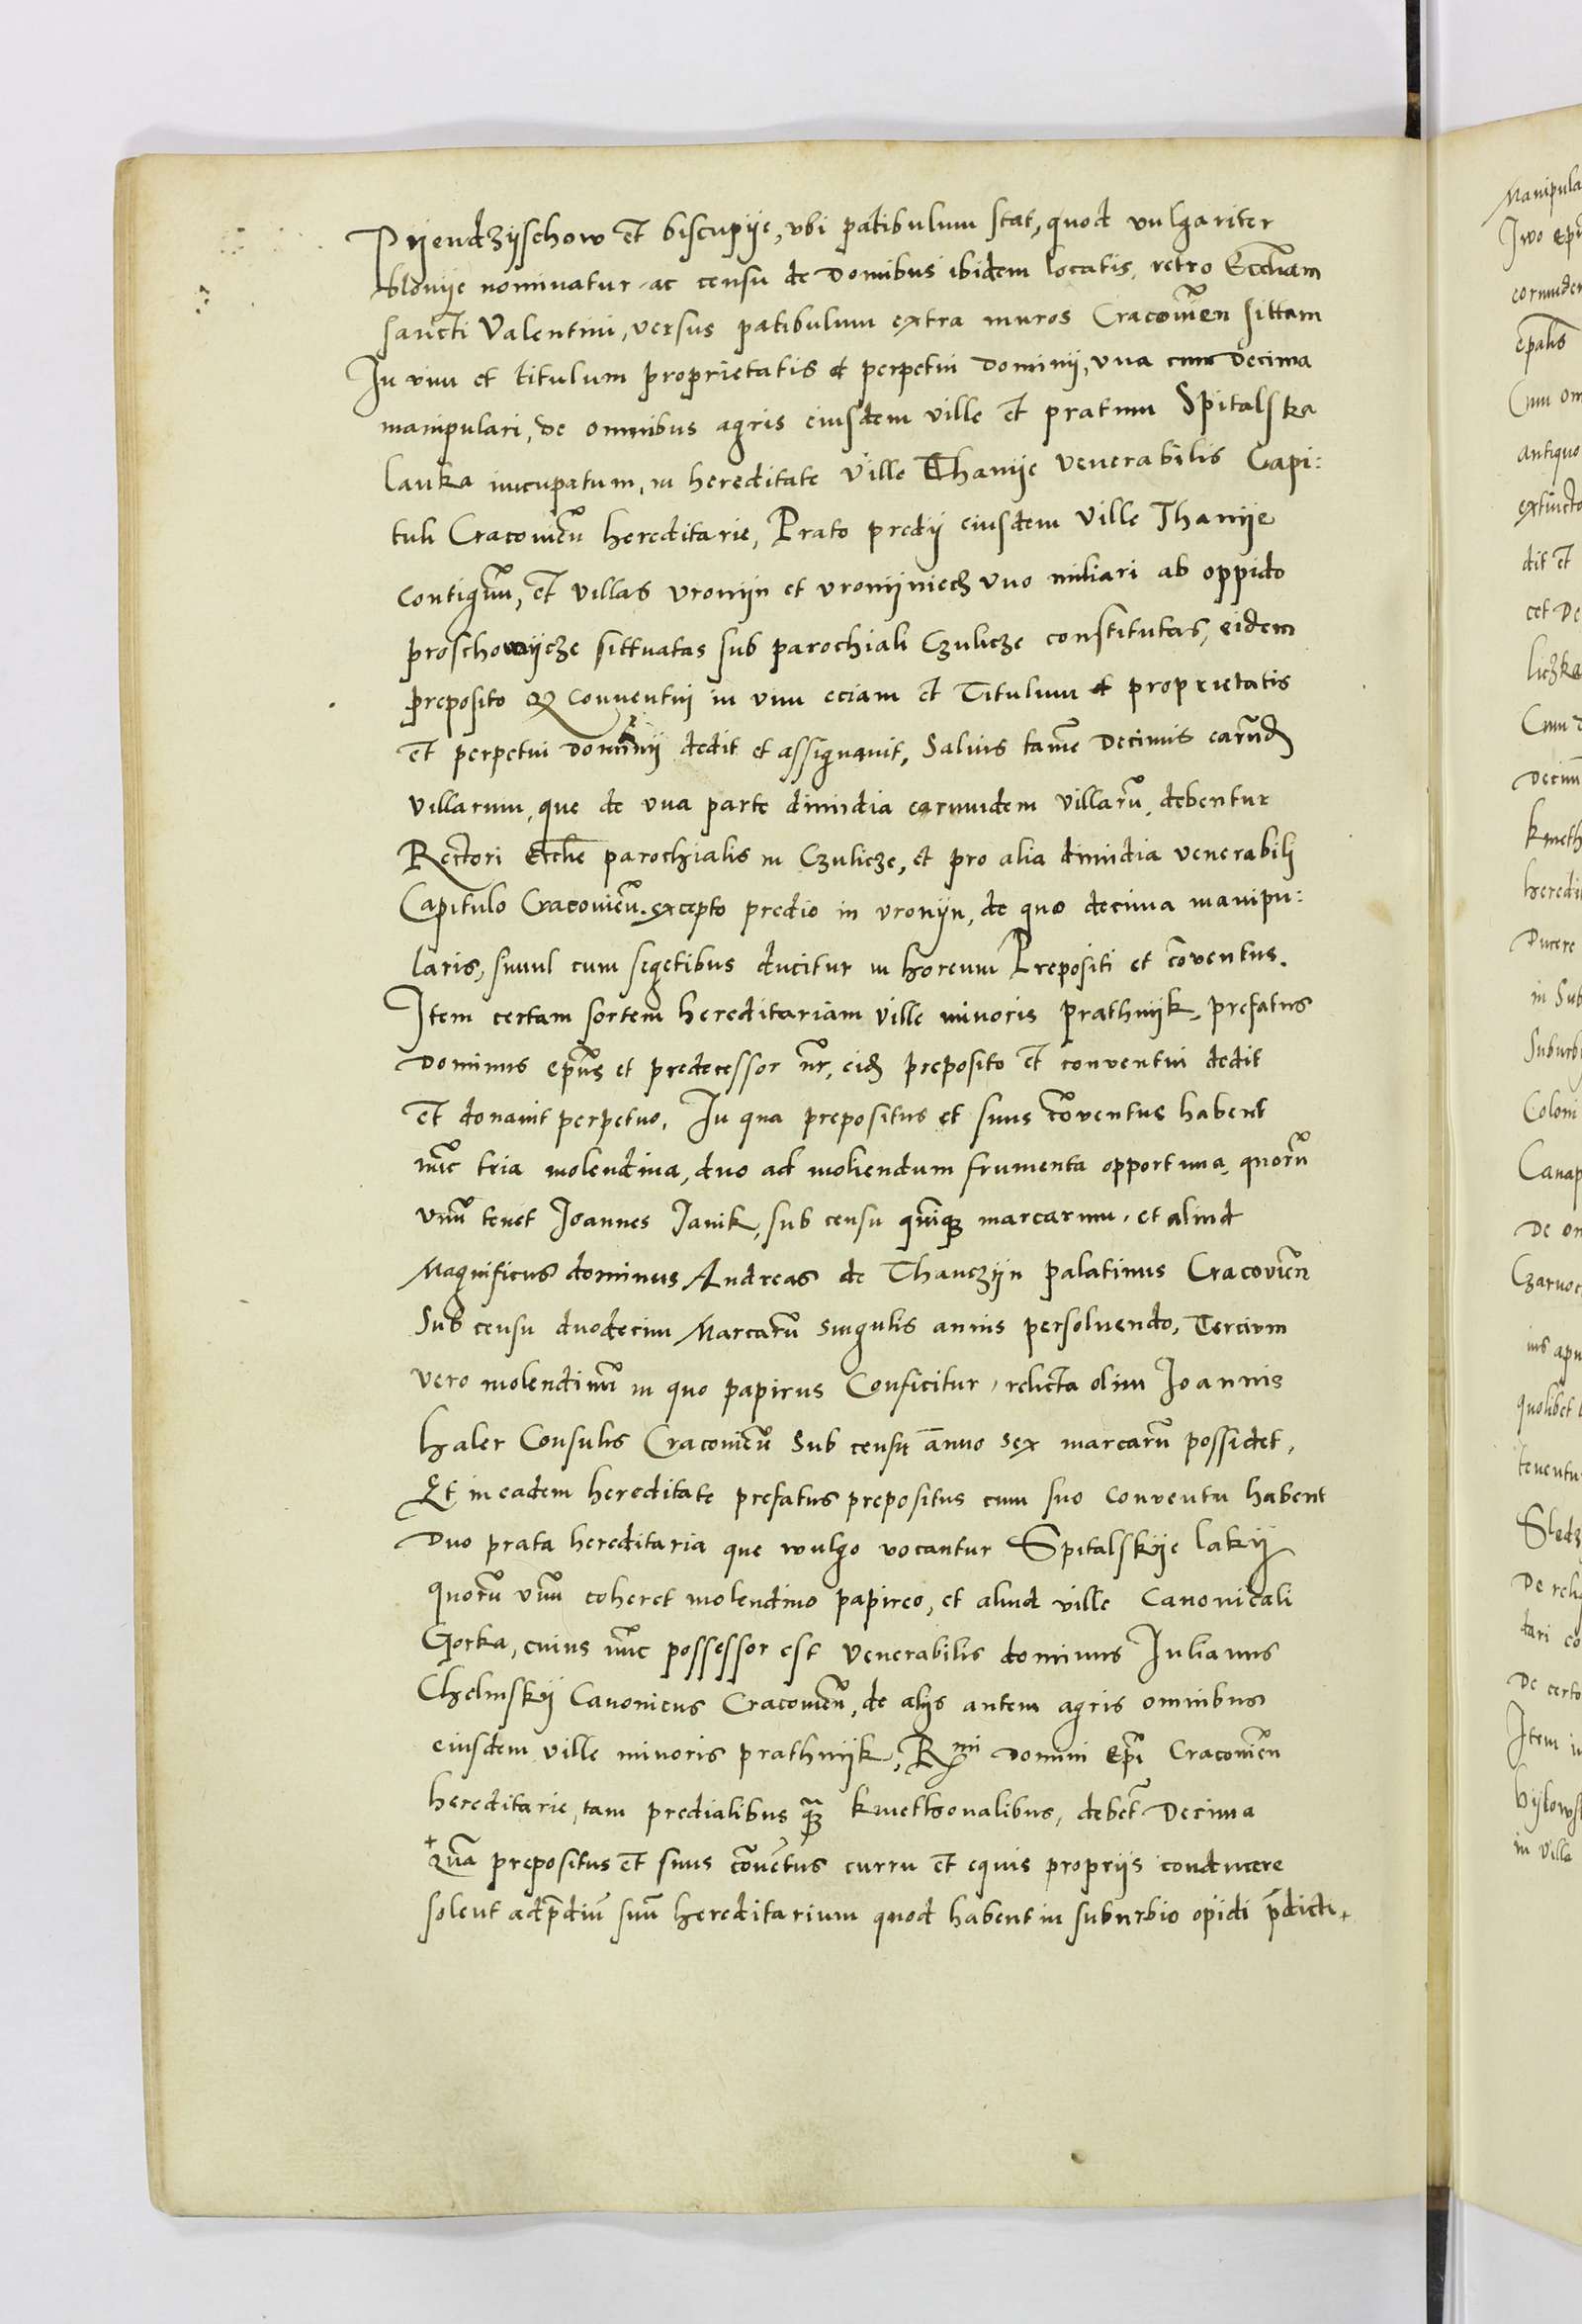 Pyendzyschow et biscupye, vbi patibulum stat, quod vulgariter
blonye nominatur ac censu de Domibus ibidem locatis, retro Eccliam
sancti Valentini, versus patibulum extra muros Cracovien̄ sittam
In vim et titulum proprietatis et perpetui Dominij, vna cum Decima
manipulari, de omnibus agris eiusdem ville et pratum Spitalska
lanka nucupatum, in hereditate Ville Thanije venerabilis Capi:
tuli Cracovien̄ hereditarie, Prato predij eiusdem Ville Thanije
contiguū, et villas vronijn et vronijniecz vno miliari ab oppido
proschovijcze sittvatas sub parochiali Czulicze constitutas, eidem
preposito & Conventui in vim eciam et Titulum et proprietatis
et perpetui dominij dedit et assignavit, Salvis tamē Decimis earūd
villarum, que de vna parte dimidia earumdem villarū debentur
Rectori Ecclie parochialis in Czulicze, et pro alia dimidia venerabili
Capitulo Cracovien̄. excepto predio in vronijn, de quo decima manipu:
laris, simul cum segetibus ducitur in horeum Prepositi et cōventus.
Item certam sortem hereditariam ville minoris prathnijk, prefatus
Dominus ep̄us et predecessor nr̄, eid preposito et conventui dedit
et donavit perpetuo, In qua prepositus et suus cōventus habent
nūc tria molendina, duo ad molendum frumenta opportuna, quorū
vnū tenet Ioannes Ianik, sub censu quīqz marcarum, et aliud
Magnificus dominus Andreas de Thanczijn palatinus Cracovien̄
Sub censu duodecim Marcarū singulis annis persolvendo, Tercium
vero molendinū in quo papirus Conficitur, relicta olim Ioannis
haler Consulis Cracovien̄ sub censu ānuo sex marcarū possidet,
Et in eadem hereditate prefatus prepositus cum suo conventu habent
Duo prata hereditaria que wulgo vocantur Spitalskije lakij
quorū vnū coheret molendino papireo, et aliud ville Canonicali
Gorka, cuius nūc possessor est Venerabilis dominus Iulianus
Chelmskij Canonicus Cracovien̄, de alijs autem agris omnibus
eiusdem ville minoris prathnijk, Rmi Domini Ep̄i Cracovien̄
hereditarie, tam predialibus quā kmethonalibus, debet̄ Decima
+ Quā prepositus et suus cōvētus curru et equis proprijs conducere
solent ad p̄diū suū hereditarium quod habent in suburbio opidi p̄dicti +
Manipula
Iwo ep
earumdem
epalis
Cum om
antiquo
extincto
dit et
cet De
liczka
Cum
Decim
kmeth
heredi
Ducere
in Sub
Suburb
Coloni
Canap
De om
Czarnoc
ius apu
quolibet
tenentu
Sledz
De reli
tari co
De certo
Item in
bijkows
in villa